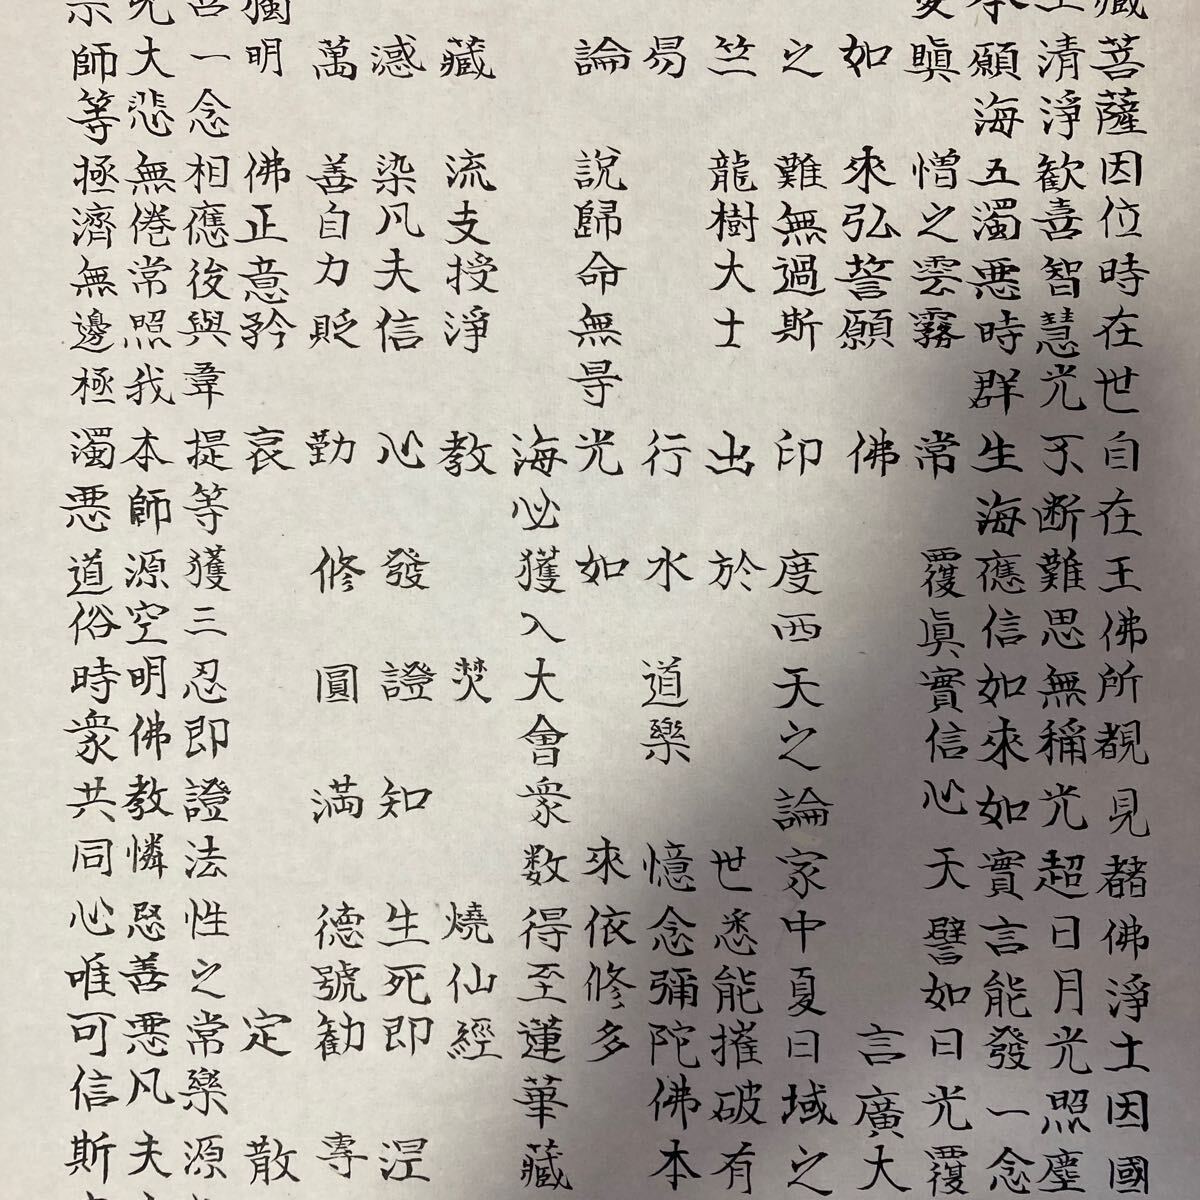 藏菩薩因位時在世自在王佛所覩見諸佛淨土因國
王清淨歡喜智慧光不断難思無稱光超日月光照塵
本願海五濁悪時群生海應信如來如實言能發一念
愛瞋憎之雲霧常覆眞實信心天譬如日光覆
如來弘誓願佛言廣大
之難無過斯印度西天之論家中夏日域之
竺龍樹大士出於世悉能摧破有
易行水道樂憶念彌陀佛本
論說歸命無㝵光如來依修多
海必獲入大會衆数得至蓮華藏
藏流支授淨教焚燒仙經
惑染凡夫信心發證知生死即涅
萬善自力貶勤修圓満德號勧專
獨明佛正意矜哀定散
言一念相應後與韋提等獲三忍即證法性之常樂源
光大悲無倦常照我本師源空明佛教憐愍善悪凡夫
宗師等拯濟無邊極濁悪道俗時衆共同心唯可信斯